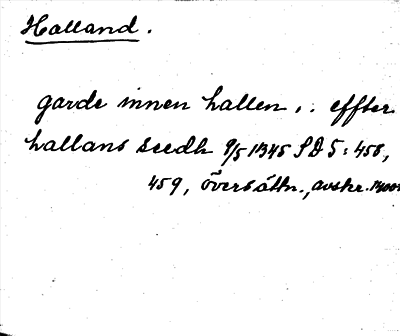 Halland.
garde innen hallen .. effter
hallans seedh 9/5 1345 SD 5: 458,
459, översättn., avskr.